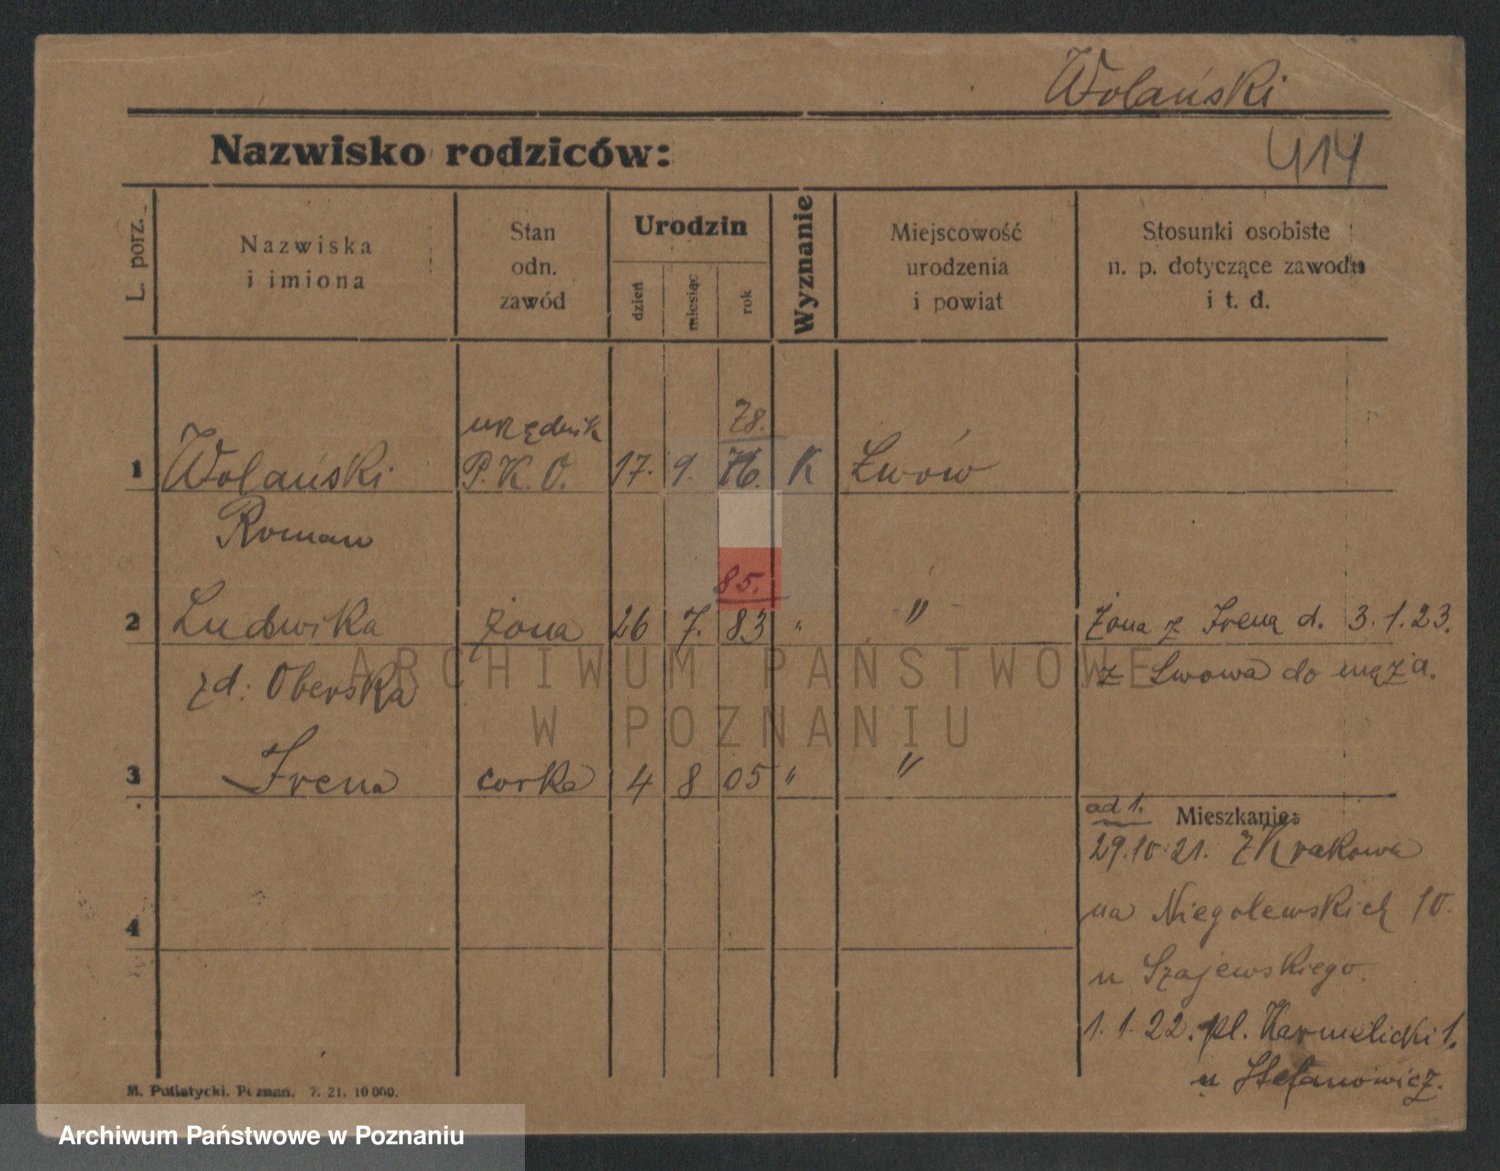 Wolański
414
Nazwisko rodziców:
L. porz.
Nazwiska
i imiona
Stan
odn.
zawód
Urodzin
dzień
miesiąc
rok
Wyznanie
Miejscowość
urodzenia
i powiat
Stosunki osobiste
n. p. dotyczące zawodu
i t. d.
urzędnik 78.
1 Wolański P. K. O. 17. 9. 76. K Lwów
Roman
85.
2 Ludwika żona 26 7. 83 " " Żona z Ireną d. 3.1.23.
zd: Oberska z Lwowa do męża.
ARCHIWUM PAŃSTWOWE
W POZNANIU
3 Irena corka 4 8 05 " "
ad 1. Mieszkanie:
29.10.21. z Krakowa
4 na Niegolewskich 10.
u Szajewskiego.
1.1.22. pl. Karmelicki 1.
u Stefanowicz.
M. Putiatycki. Poznań. 7. 21. 10 000.
Archiwum Państwowe w Poznaniu